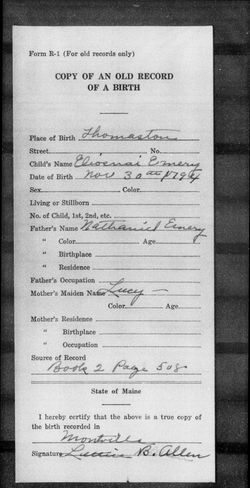 Form R-1 (For old records only)
COPY OF AN OLD RECORD
OF A BIRTH
Place of Birth Thomaston
Street No.
Child's Name Elioenai Emery
Date of Birth Nov 30th 1794
Sex Color
Living or Stillborn
No. of Child, 1st, 2nd, etc.
Father's Name Nathaniel Emery
" Color Age
" Birthplace
" Residence
Father's Occupation
Mother's Maiden Name Lucy —
Color Age
Mother's Residence
" Birthplace
" Occupation
Source of Record
Book 2 Page 508
State of Maine
I hereby certify that the above is a true copy of
the birth recorded in
Montville
Signature B. Allen